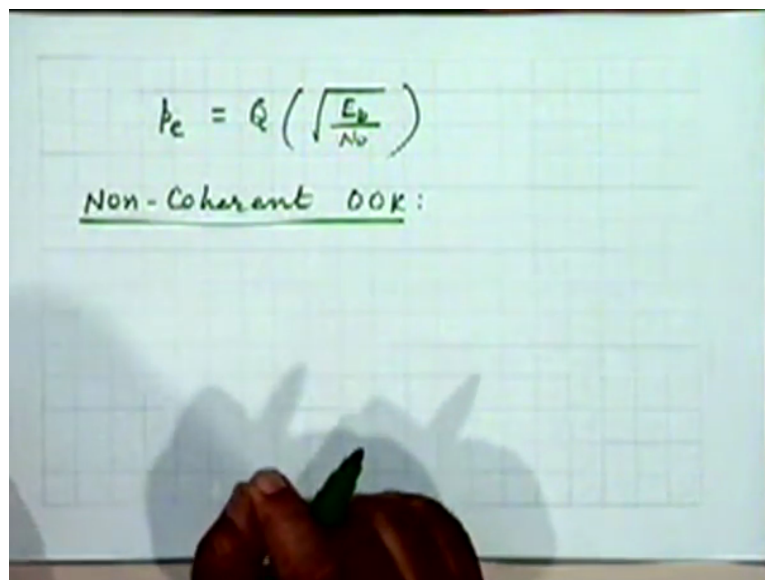 Pe = Q ( √ Eb / No )
Non-Coherent OOK :